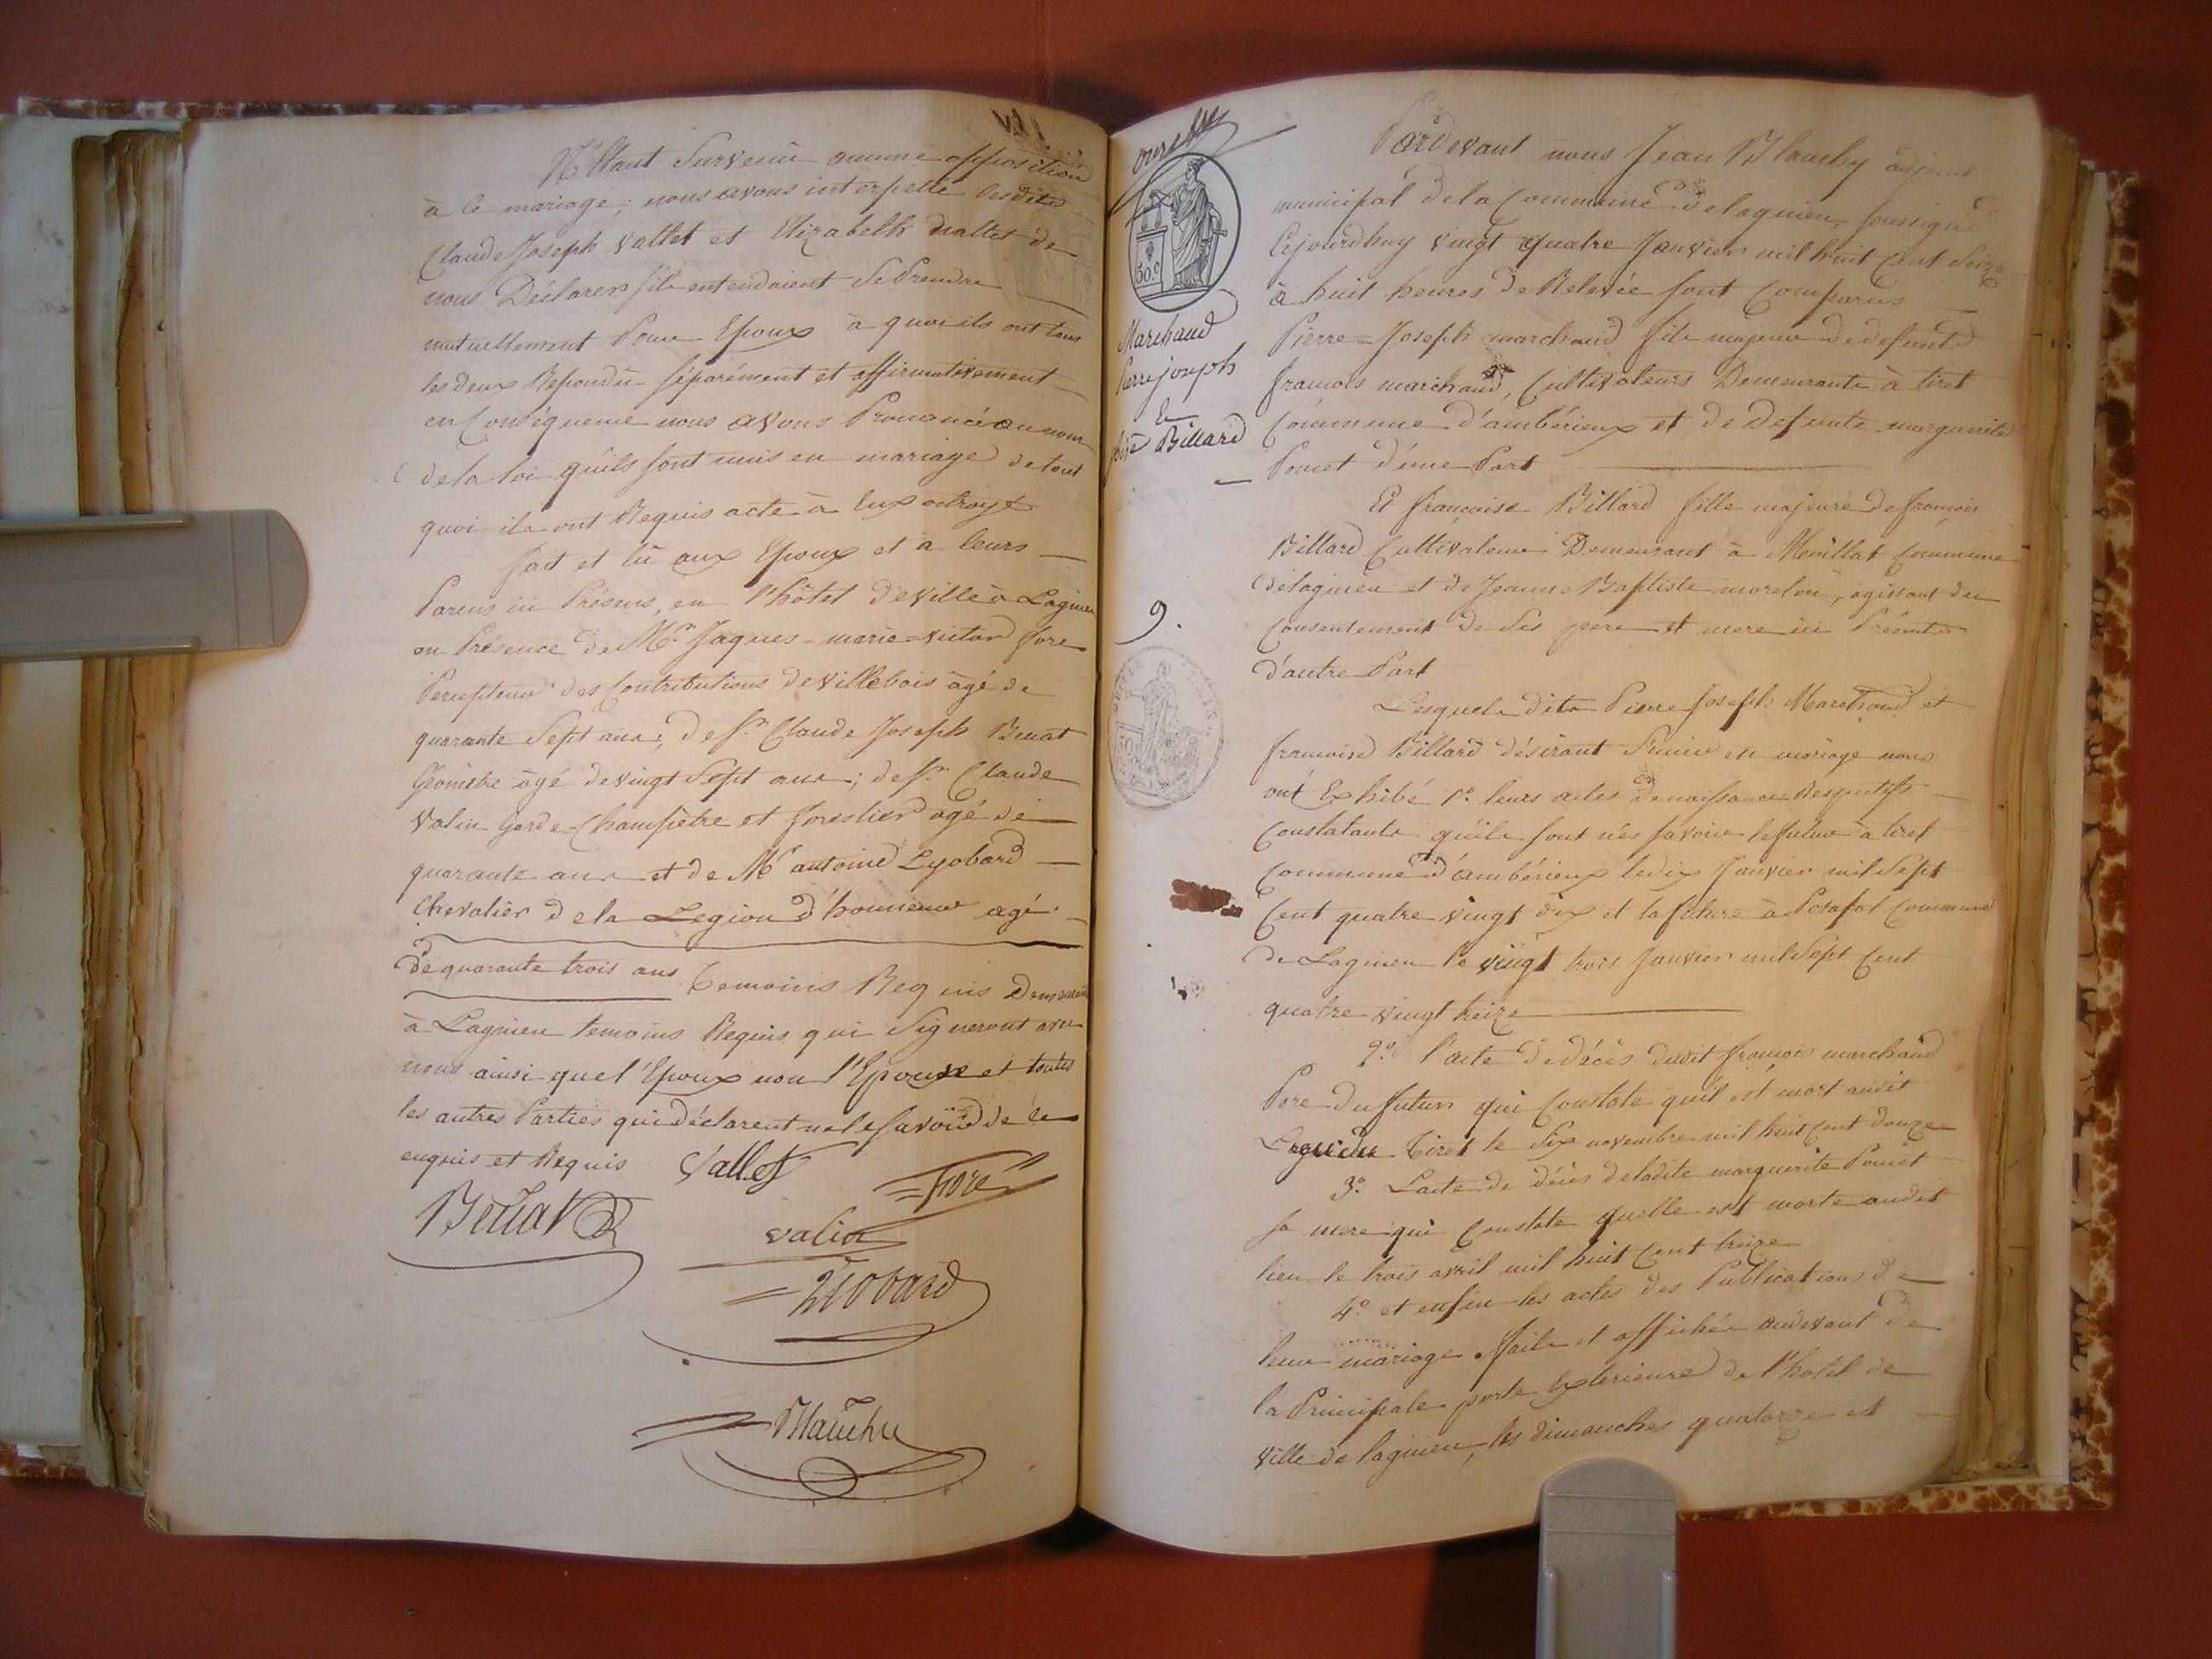 N'Etant Survenu aucune opposition
à ce mariage; nous avons interpellé lesdits
Claude Joseph Vallet et Elizabeth de
nous Déclarer s'ils entendaient Se Prendre
mutuellement Pour Epoux à quoi ils ont tous
les deux Repondu séparément et affirmativement
en Conséquence nous avons Prononcé au nom
de la loi qu'ils sont unis en mariage de tout
quoi ils ont Requis acte à Eux octroyé
fait et lu aux Epoux et à leurs
Parens ici Présens, en l'hôtel de Ville à Lagnieu
en Présence de Mr. Jaques-marie-victor fore
Percepteur des Contributions de Villebois âgé de
quarante Sept ans; de Sr. Claude Joseph
Géomètre âgé de vingt Sept ans; de Sr. Claude
Valin Garde-Champêtre et forestier agé de
quarante ans et de Mr antoine Lyobard
Chevalier de la Legion d'honneur agé
de quarante trois ans Temoins Requis Demeurant
à Lagnieu temoins Requis qui Signeront avec
nous ainsi que l'Epoux non l'Epouse et toutes
les autres Parties qui déclarent ne le Savoir de ce
enquis et Requis Vallet
fore
valin
Liobard
Blanchy
30.c
Marchand
Pierre joseph
&
Billard
9.
Pardevant nous Jean Blanchy adjoint
municipal de la Commune de lagnieu, soussigné
Cejourdhuy vingt quatre Janvier mil huit Cent Seize
à huit heures de Relevée sont Comparus
Pierre-Joseph marchand fils majeur de defunts
francois marchand, Cultivateurs Demeurants à tiret
Commune d'ambérieux et de Defunte marguerite
Poncet d'une Part
Et françoise Billard fille majeure de françois
Billard Cultivateur Demeurant à Commune
de lagnieu et de Jeanne Baptiste morelon, agissant du
Consentement de Ses pere et mere ici Présents
d'autre Part
Lesquels dits Pierre Joseph Marchand et
francoise Billard désirant S'unir en mariage nous
ont Exhibé 1o. leurs actes de naissances Respectifs
Constatants qu'ils sont nés savoir le futur à tiret
Commune d'ambérieux le dix Janvier mil Sept
Cent quatre vingt dix et la future à Posafol Commune
de Lagnieu le vingt trois Janvier mil Sept Cent
quatre vingt treize
2o. l'acte de décès dudit francois marchand
Pere du futur qui Constate qu'il est mort audit
Tiret le Six novembre mil huit Cent douze
3o. L'acte de décès de ladite marguerite Poncet
sa mere qui Constate quelle est morte audit
lieu le trois avril mil huit Cent treize
4o. et enfin les actes des Publications de
leur mariage faite et affichée audevant de
la Principale porte Exterieure de l'hôtel de
Ville de lagnieu, les dimanches quatorze et